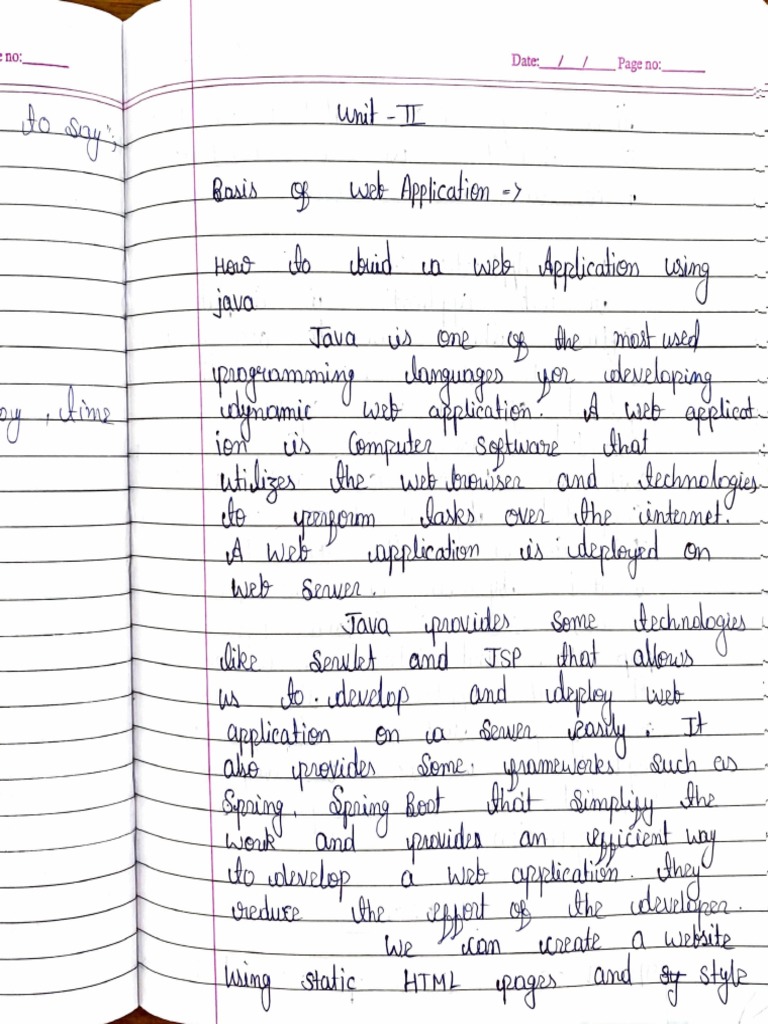 e no:
Date: / / Page no:
to say";
Unit - II
Basis of Web Application =>
How to buid a web Application using
java
Java is one of the most used
programming languages for developing
ay, time
dynamic web application. A web applicat
ion is Computer Software that
utilizes the web browser and technologies
to perform tasks over the internet.
A web application is deployed on
web server.
Java provides some technologies
like Servlet and JSP that allows
us to develop and deploy web
application on a server easily. It
also provides some frameworks such as
Spring, Spring Boot that simplify the
work and provides an efficient way
to develop a web application. they
reduce the effort of the developer.
We can create a website
using static HTML pages and style